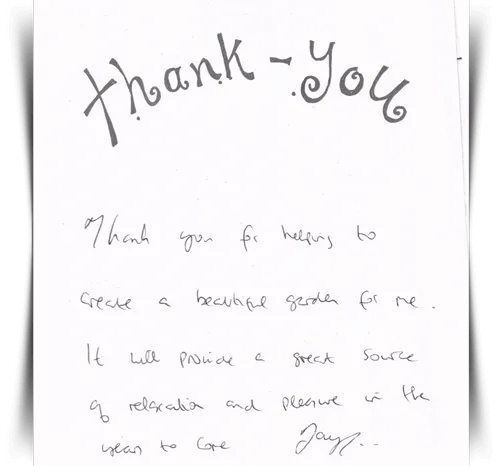 Thank-you
Thank you for helping to
create a beautiful garden for me.
It will provide a great source
of relaxation and pleasure in the
years to come